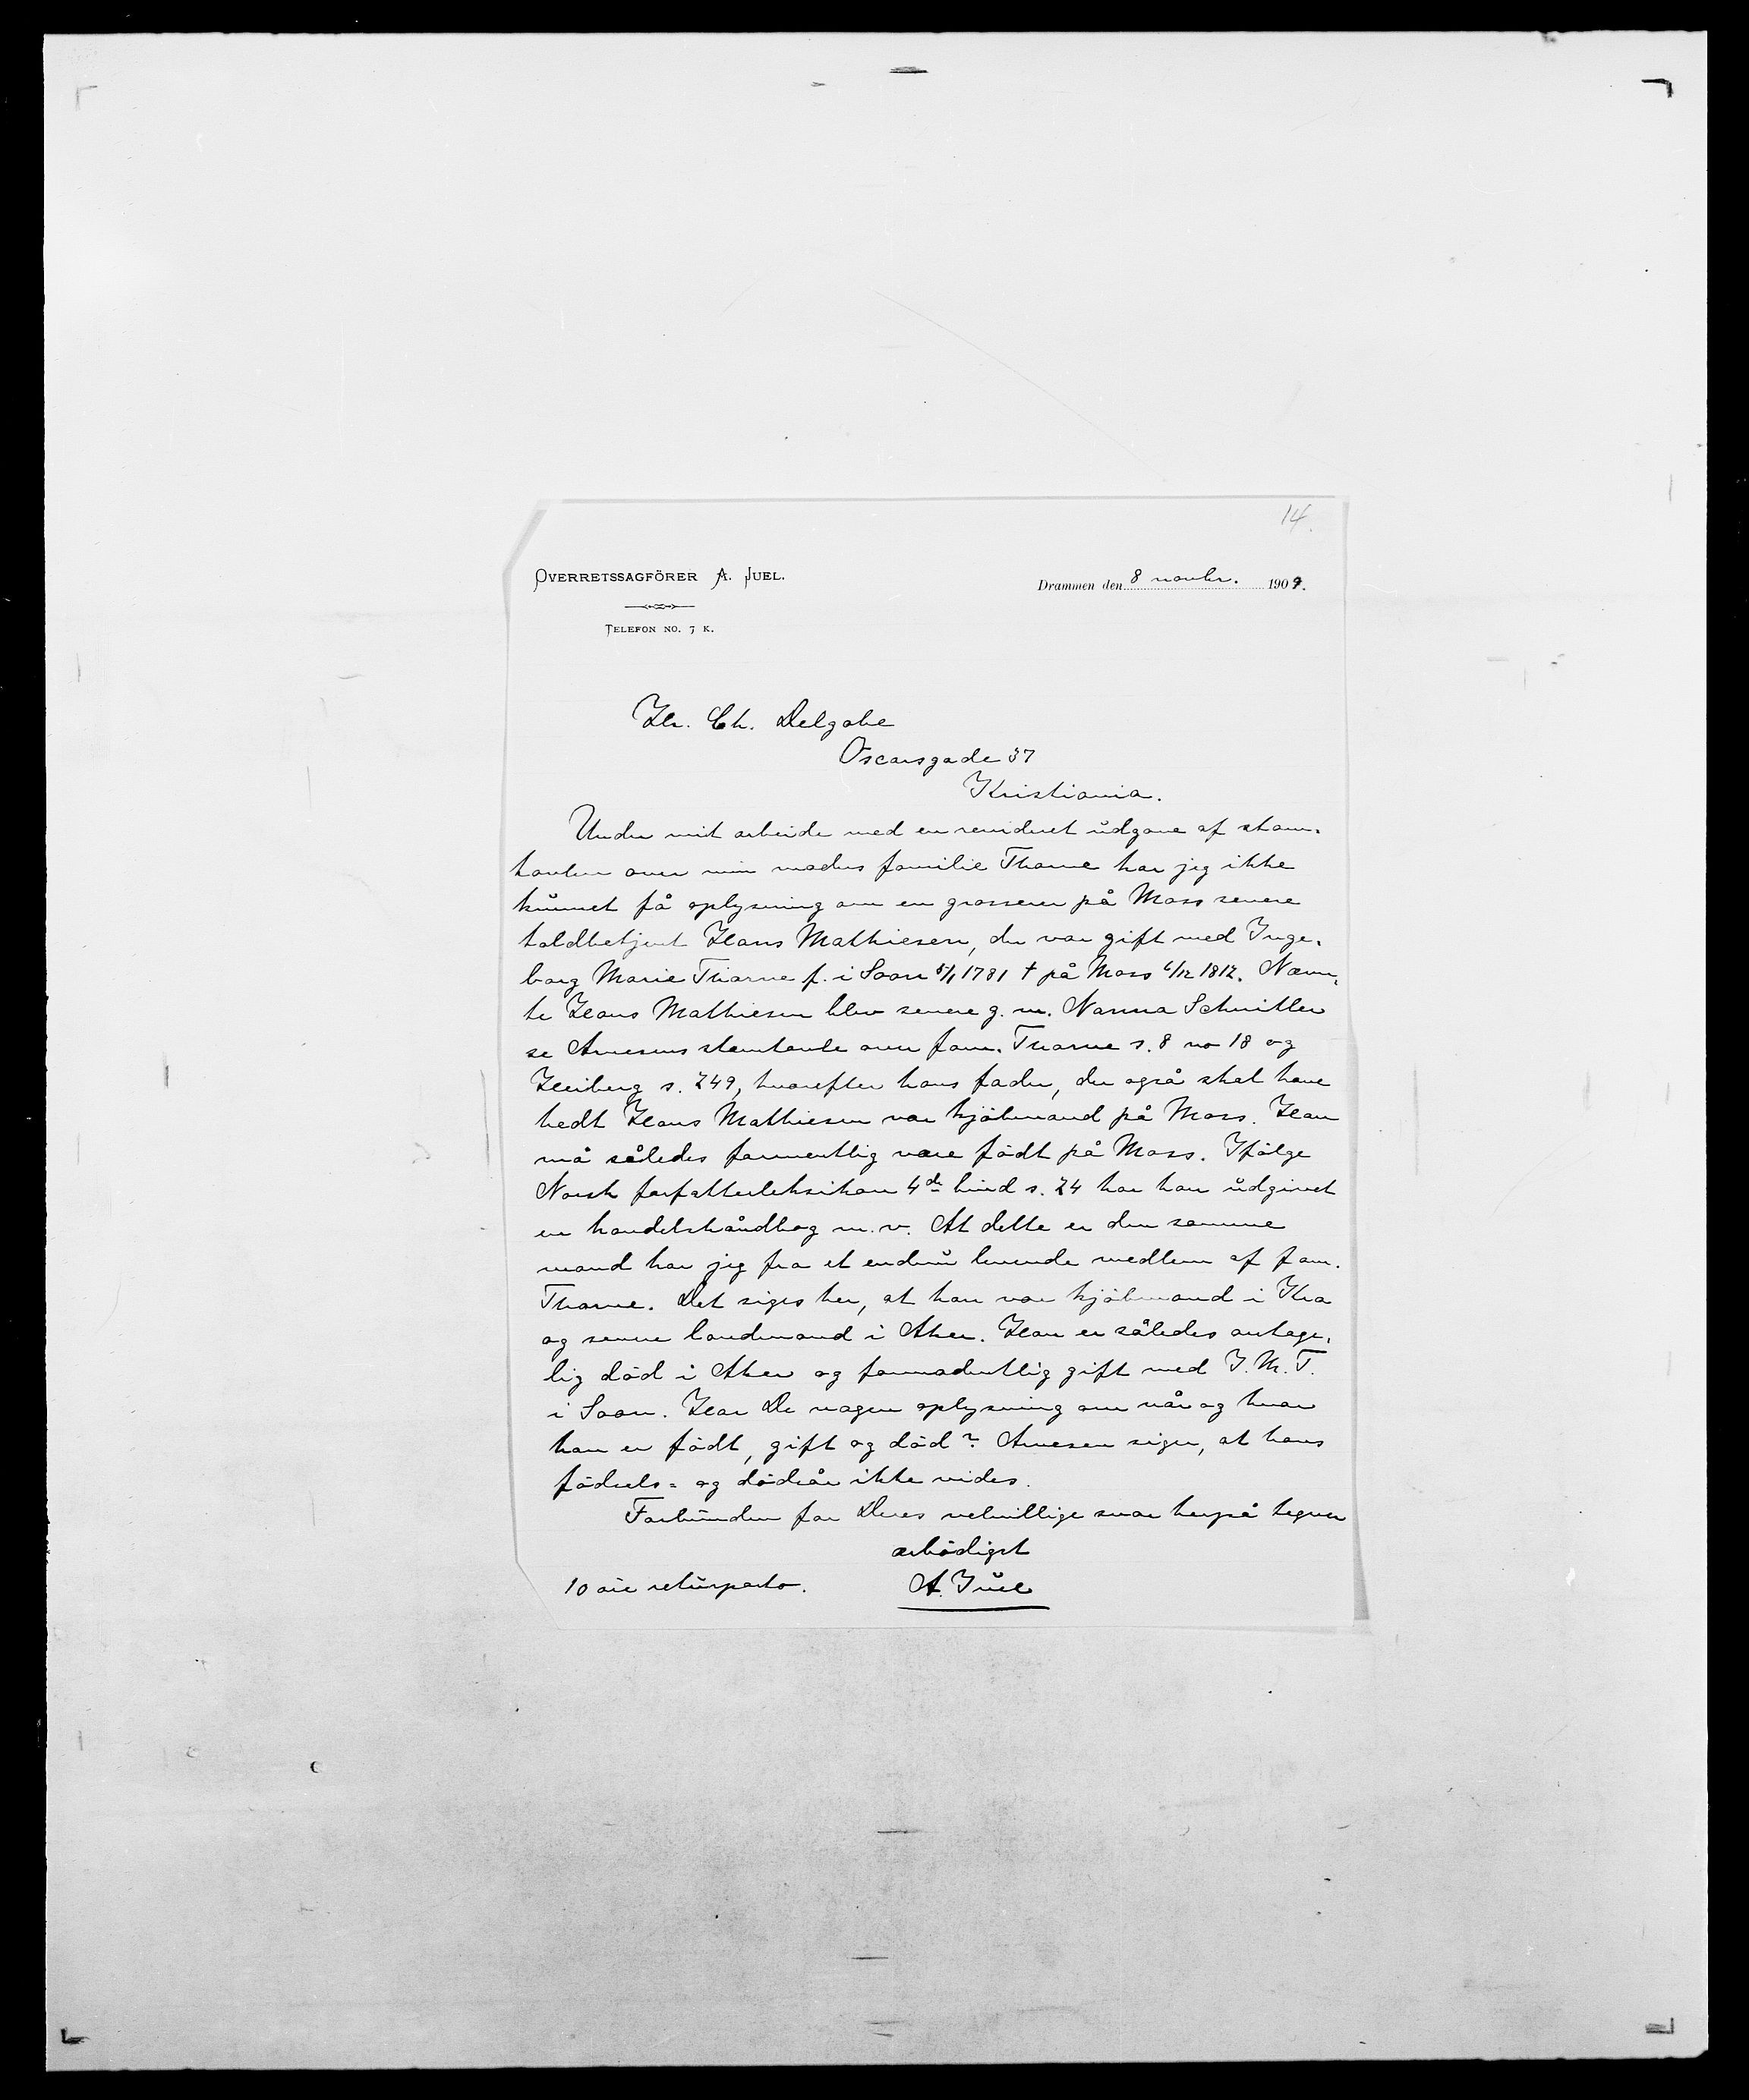 14.
OVERRETSSAGFÖRER A. JUEL.
Drammen den 8 novbr. 1909.
TELEFON NO. 7 K.
Hr. Ch. Delgobe
Oscarsgade 37
Kristiania.
Under mit arbeide med en revideret udgave af stam-
tavlen over min moders familie Thorne har jeg ikke
kunnet få oplysning om en grosserer på Moss senere
toldbetjent Hans Mathiesen, der var gift med Inge-
borg Marie Thorne f. i Soon 5/1 1781 † på Moss 6/12 1812. Nævn-
te Hans Mathiesen blev senere g. m. Nanna Schnitler
se Arnesens stamtavle over fam. Thorne s. 8 no 18 og
Heiberg s. 249, hvorefter hans fader, der også skal have
hedt Hans Mathiesen var kjöbmand på Moss. Han
må således formentlig være födt på Moss. Ifölge
Norsk forfatterleksikon 4de bind s. 24 har han udgivet
en handelshåndbog m. v. At dette er den samme
mand har jeg fra et endnu levende medlem af fam.
Thorne. Det siges her, at han var kjöbmand i Kra
og senere landmand i Aker. Han er således antage-
lig död i Aker og formodentlig gift med I. M. T.
i Soon. Har De nogen oplysning om når og hvor
han er födt, gift og död? Arnesen siger, at hans
födsels- og dödsår ikke vides.
Forbunden for Deres velvillige svar herpå tegner
ærbödigst
10 öre returporto. A. Juel